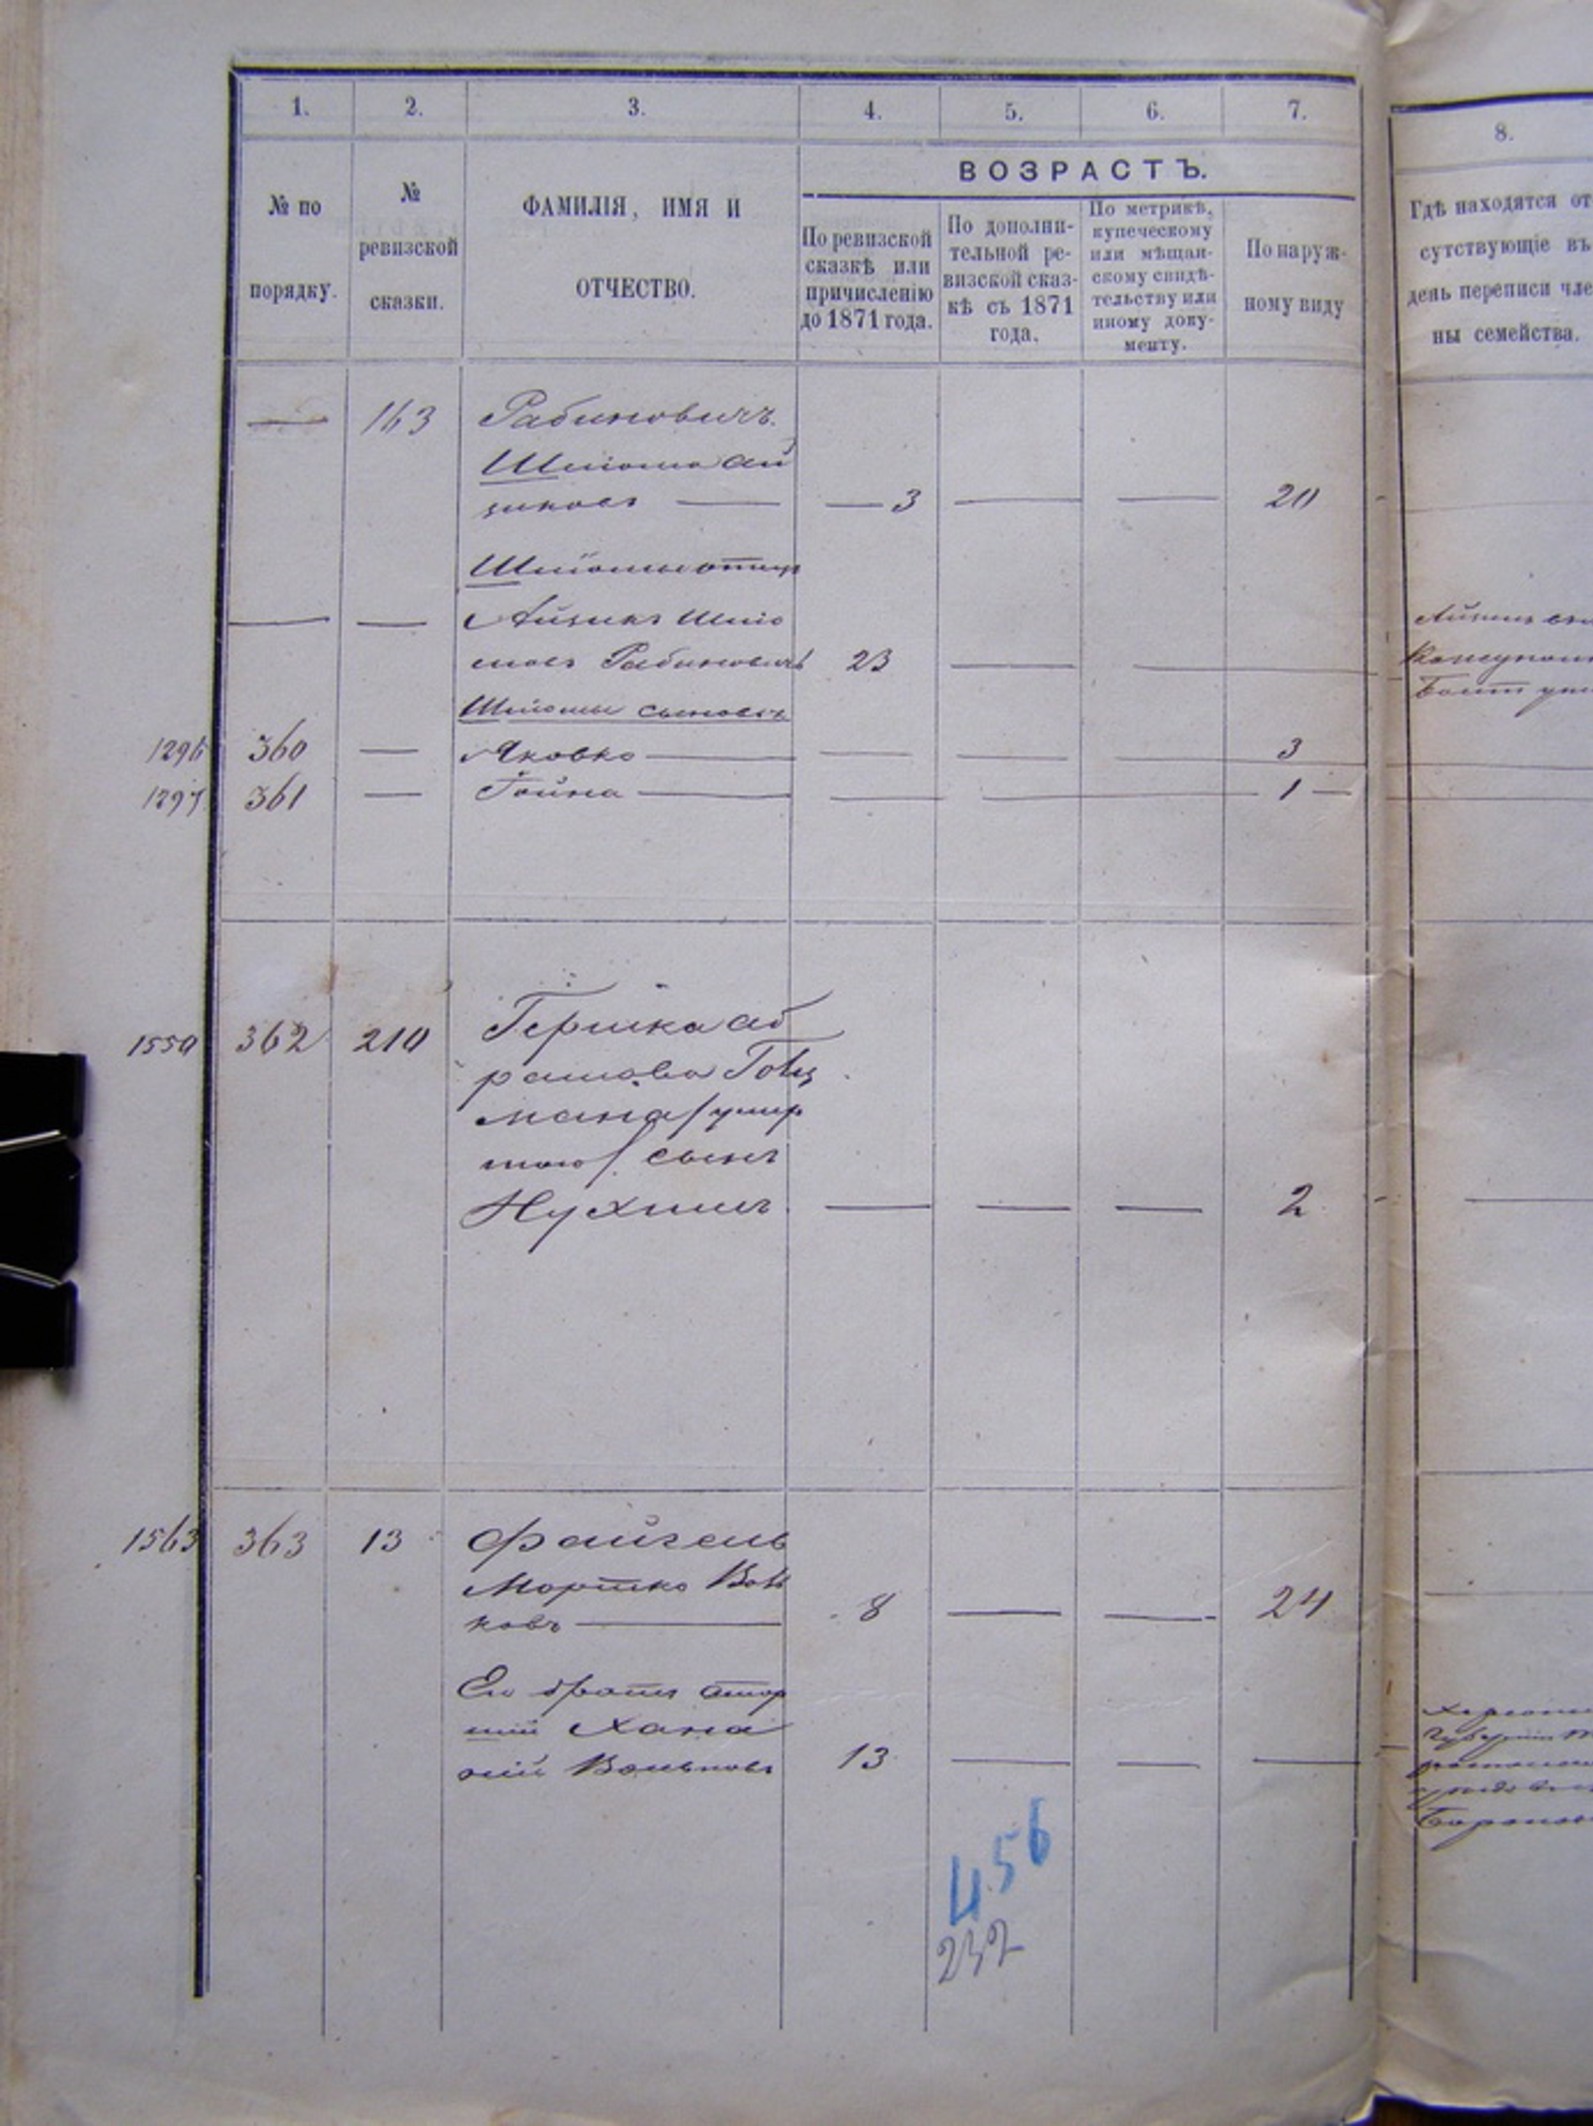 1. 2. 3. 4. 5. 6. 7. 8.
ВОЗРАСТЪ.
№ по
порядку.
№
ревизской
сказки.
ФАМИЛІЯ, ИМЯ И
ОТЧЕСТВО.
По ревизской
сказкѣ или
причисленію
до 1871 года.
По дополни-
тельной ре-
визской сказ-
кѣ съ 1871
года.
По метрикѣ,
купеческому
или мѣщан-
скому свидѣ-
тельству или
иному доку-
менту.
По наруж-
ному виду
Гдѣ находятся от
сутствующіе въ
день переписи чле
ны семейства.
— 163 Рабиновичъ.
Шліома Ай
зиковъ — — 3 — — 20
Шліомы отецъ
— — Айзикъ Шліо
мовъ Рабиновичъ 23 — —
Шліомы сыновья
1296 360 — Яковко — — — — 3
1297 361 — Гойна — — — — 1 —
1550 362 210 Гершка Аб
рамова Гойц
мана /умер
шаго/ сынъ
Нухимъ — — — 2
1563 363 13 Файгель
Мортко Воль
ковъ — 8 — — 24
Его братъ стар
шій Хана
ній Вольковъ 13 — — —
456
232